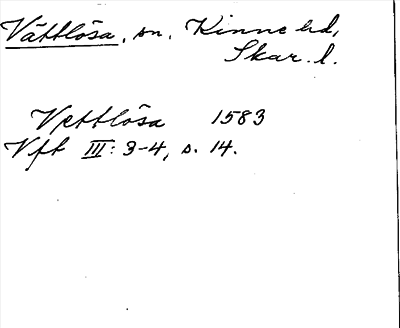 Vättlösa, sn. Kinne hd,
Skar. l.
Vettlösa 1583
Vft III: 3-4, s. 14.